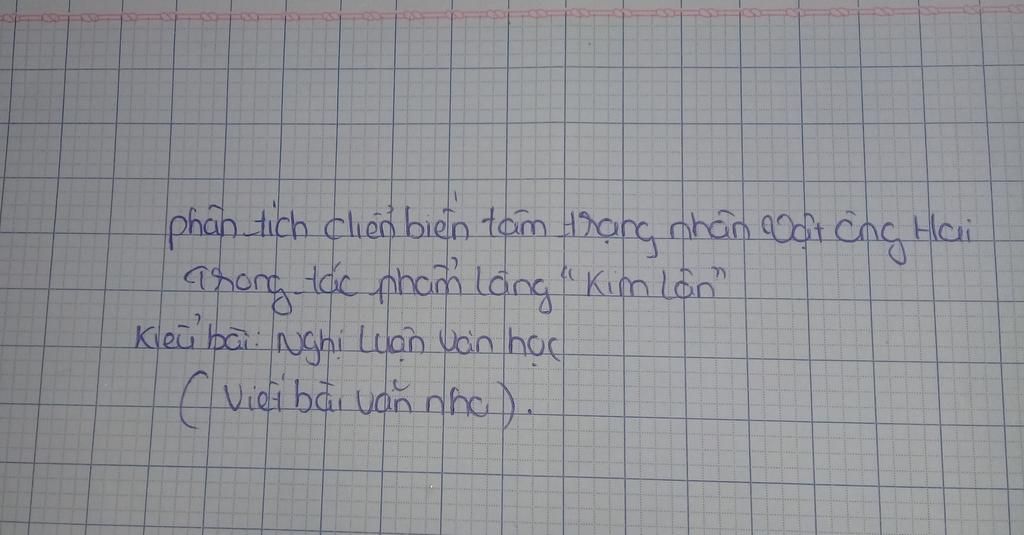 phân tích diễn biến tâm trạng nhân vật ông Hai
trong tác phẩm làng "Kim lân"
Kiểu bài: Nghị luận văn học
(Viết bài văn nha).